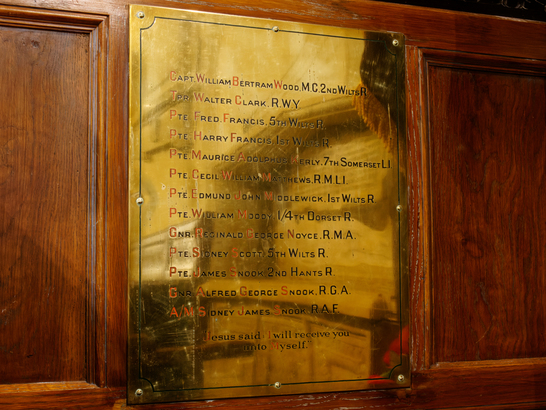 Capt. William Bertram Wood. M.C. 2nd Wilts R.
Tpr. Walter Clark. R.W.Y.
Pte. Fred. Francis. 5th Wilts R.
Pte. Harry Francis. 1st Wilts R.
Pte. Maurice Adolphus Merly. 7th Somerset L.I.
Pte. Cecil William Matthews. R.M.L.I.
Pte. Edmund John Middlewick. 1st Wilts R.
Pte. William Moody. 1/4th Dorset R.
Gnr. Reginald George Noyce. R.M.A.
Pte. Sidney Scott. 5th Wilts R.
Pte. James Snook. 2nd Hants R.
Gnr. Alfred George Snook. R.G.A.
A/M Sidney James Snook. R.A.F.
Jesus said I will receive you
unto Myself.